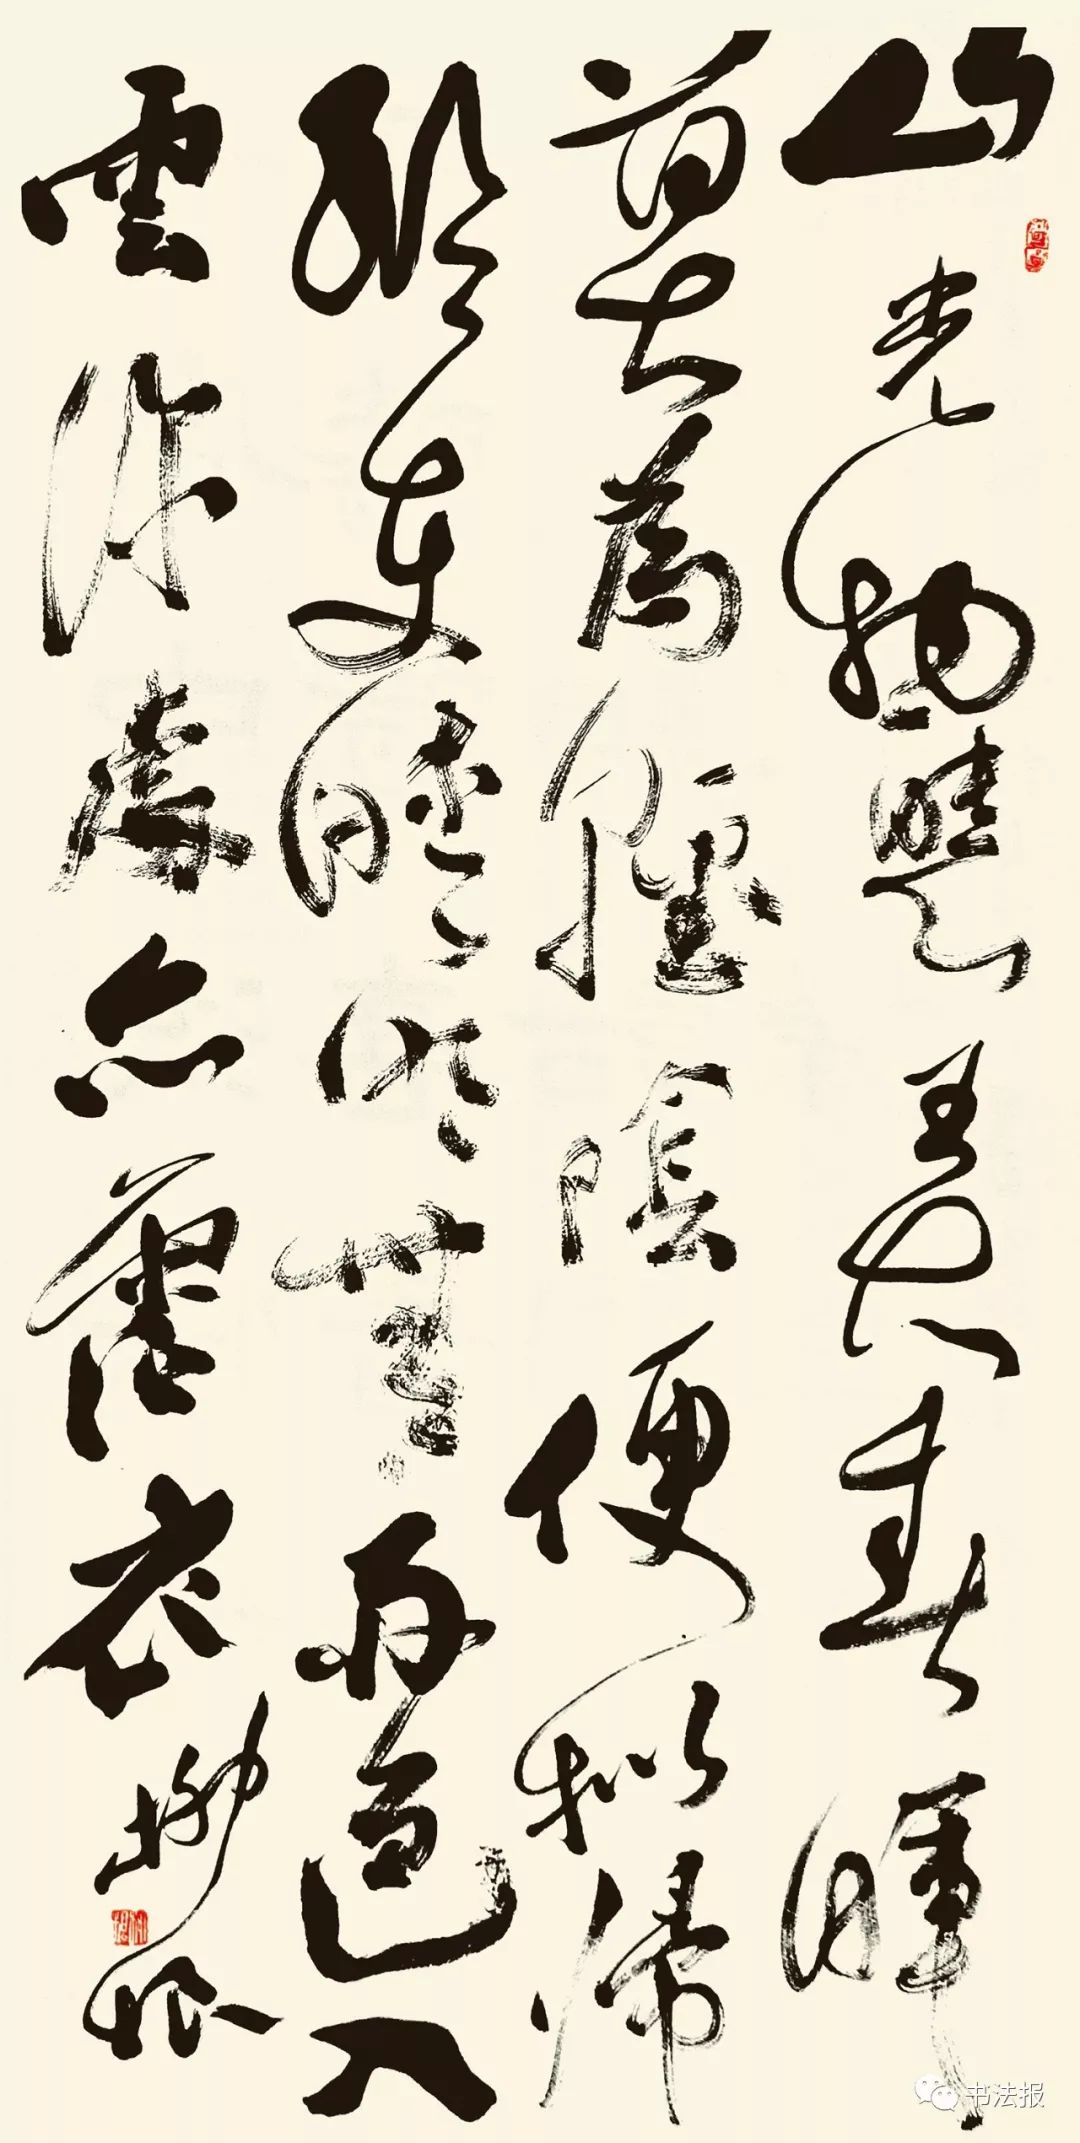 山光物態弄春暉
莫為輕陰便拟歸
縱使晴明無雨色入
雲深處亦霑衣
书法报